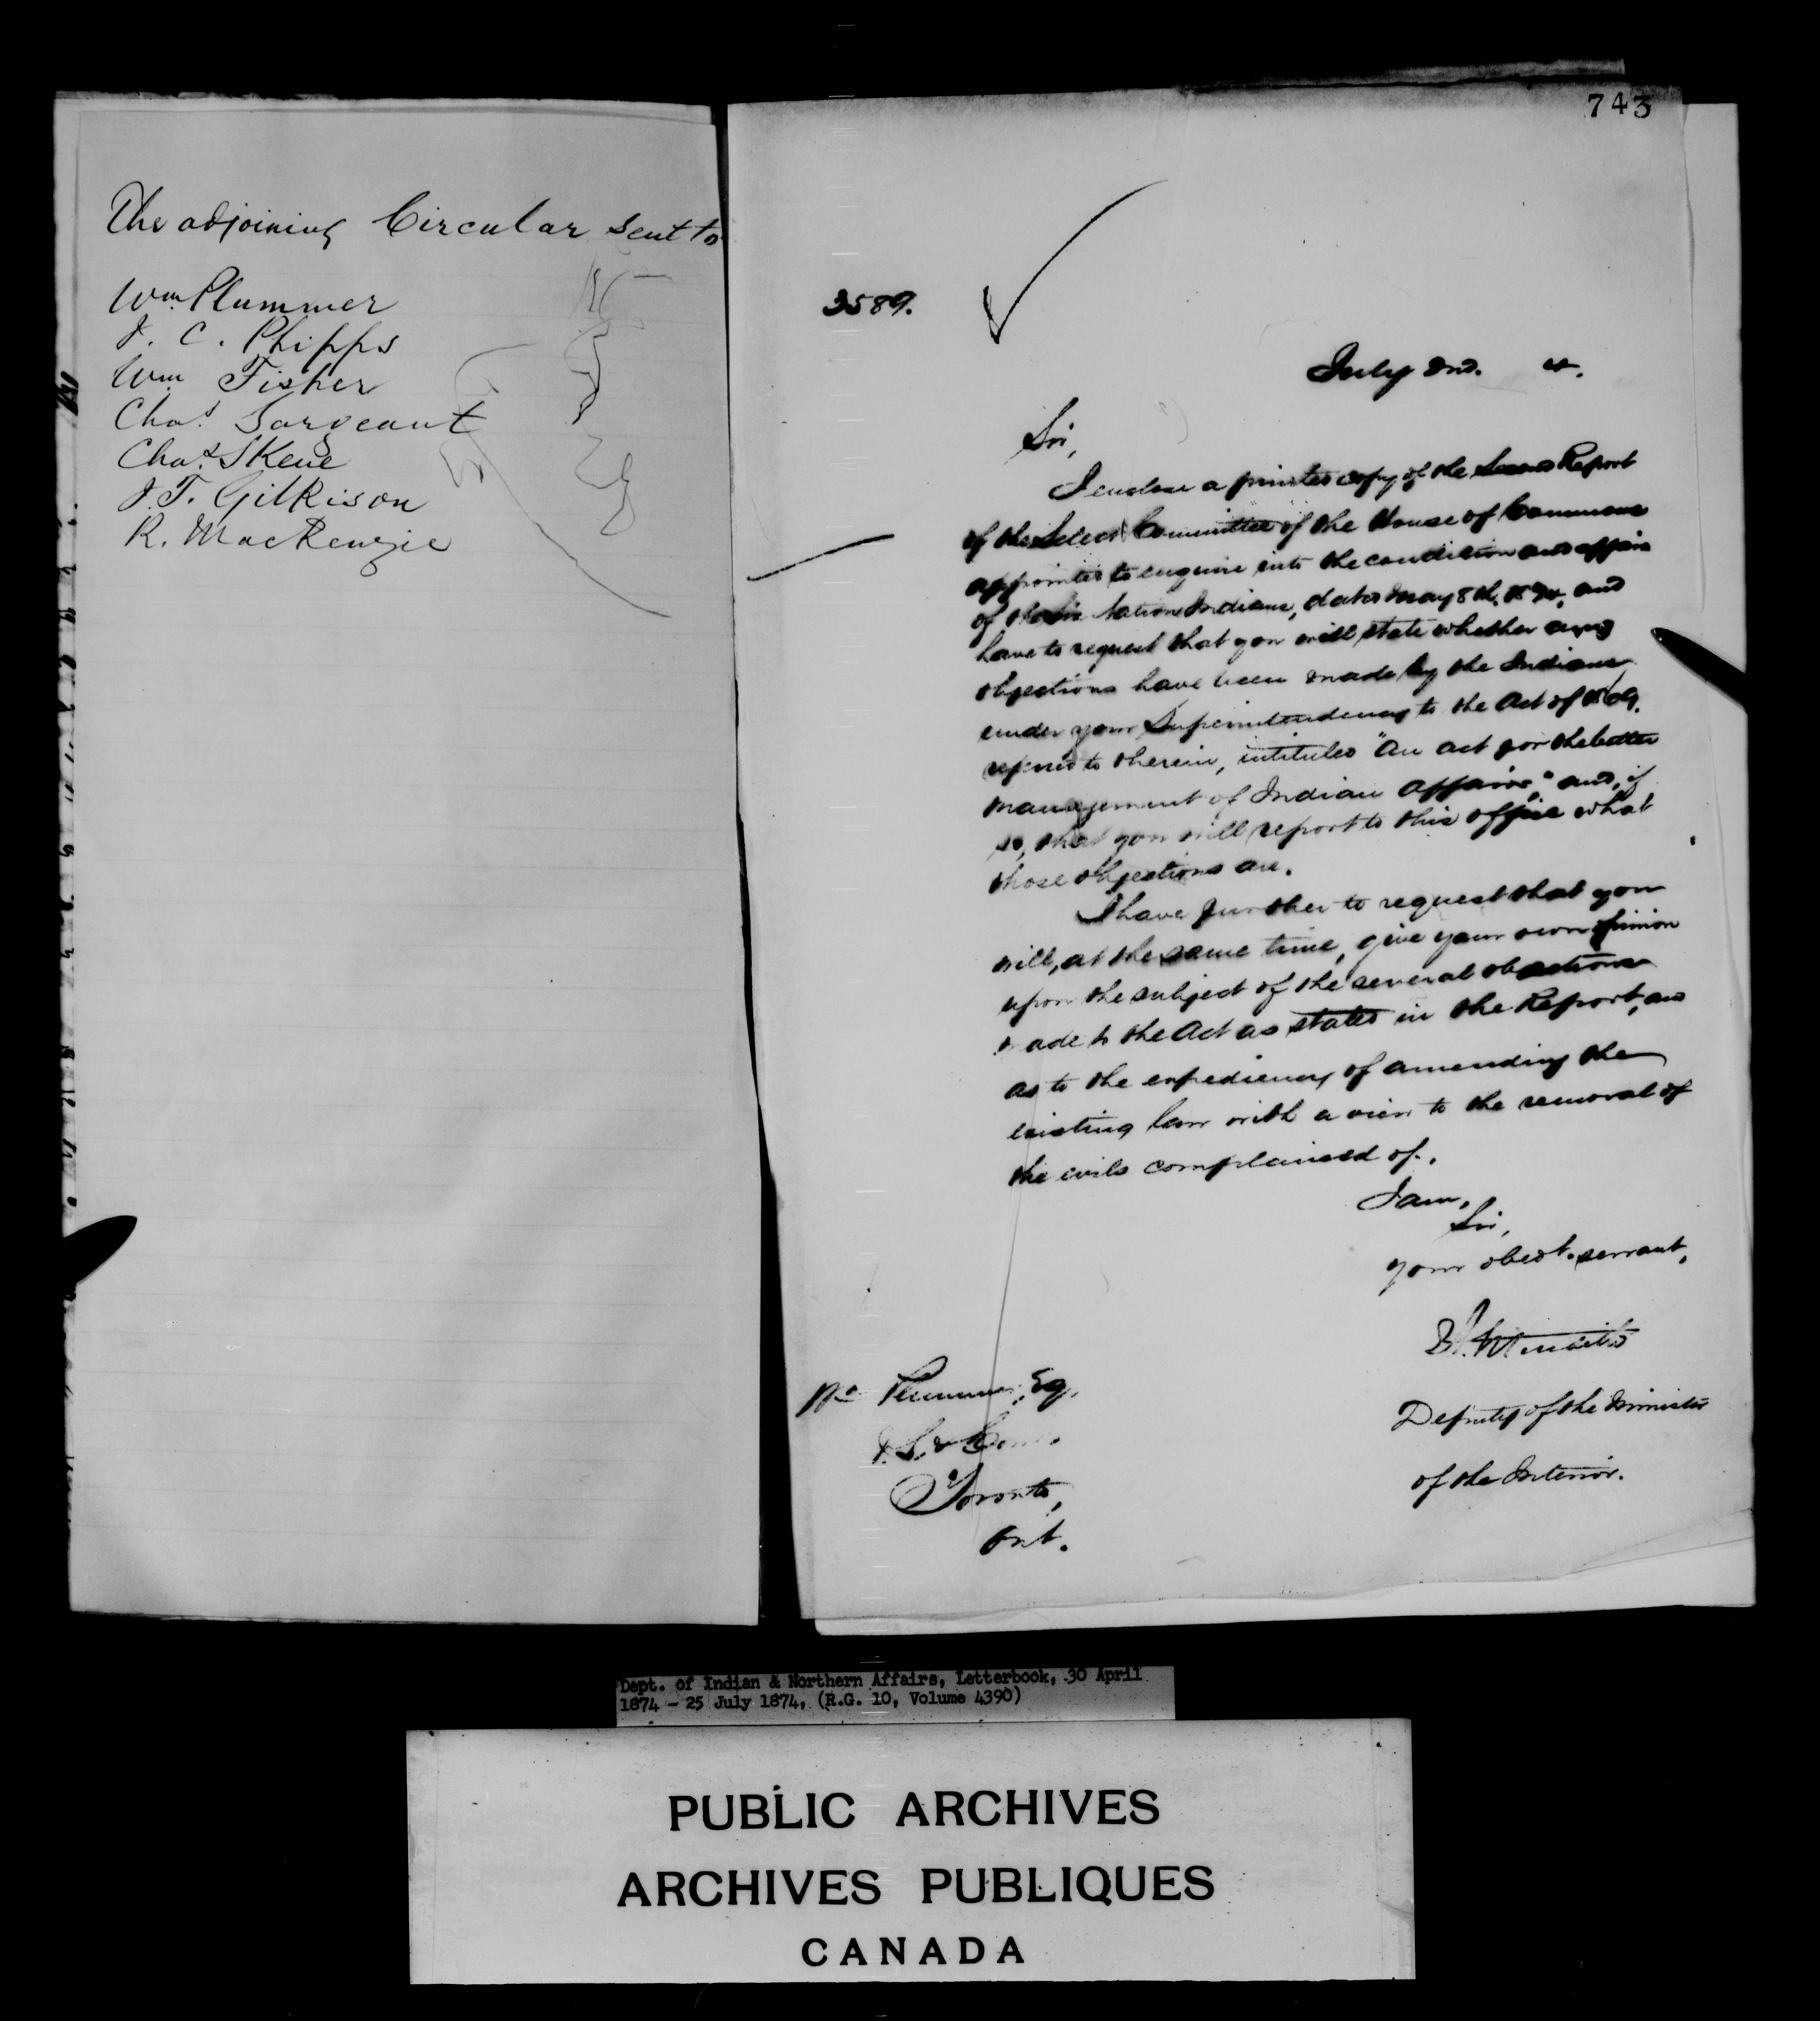 The adjoining Circular sent to
Wm. Plummer
J. C. Phipps
Wm Fisher
Chas. Sargeant
Chas. Skene
J. T. Gilkison
R. MacKenzie
743
3589.
July 2nd. 4.
Sir,
I enclose a printed copy of the Second Report
of the Select Committee of the House of Commons
appointed to enquire into the condition and affairs
of the Six Nation Indians, dated May 8th, 1874, and
have to request that you will state whether any
objections have been made by the Indians
under your Superintendency to the Act of 1869.
referred to therein, intituled "An act for the better
management of Indian Affairs," and, if
so, that you will report to this office what
those objections are.
I have further to request that you
will, at the same time, give your own opinion
upon the subject of the several objections
made to the Act as stated in the Report, and
as to the expediency of amending the
existing law with a view to the removal of
the evils complained of.
I am,
Sir,
Your obedt. servant,
Deputy of the Minister
of the Interior.
Wm Plummer, Esq.
Toronto,
Ont.
Dept. of Indian & Northern Affairs, Letterbook, 30 April
1874 - 25 July 1874, (R.G. 10, Volume 4390)
PUBLIC ARCHIVES
ARCHIVES PUBLIQUES
CANADA